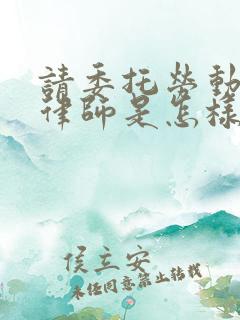 請委托勞動
律師是怎樣
侯立安
未经同意禁止转载